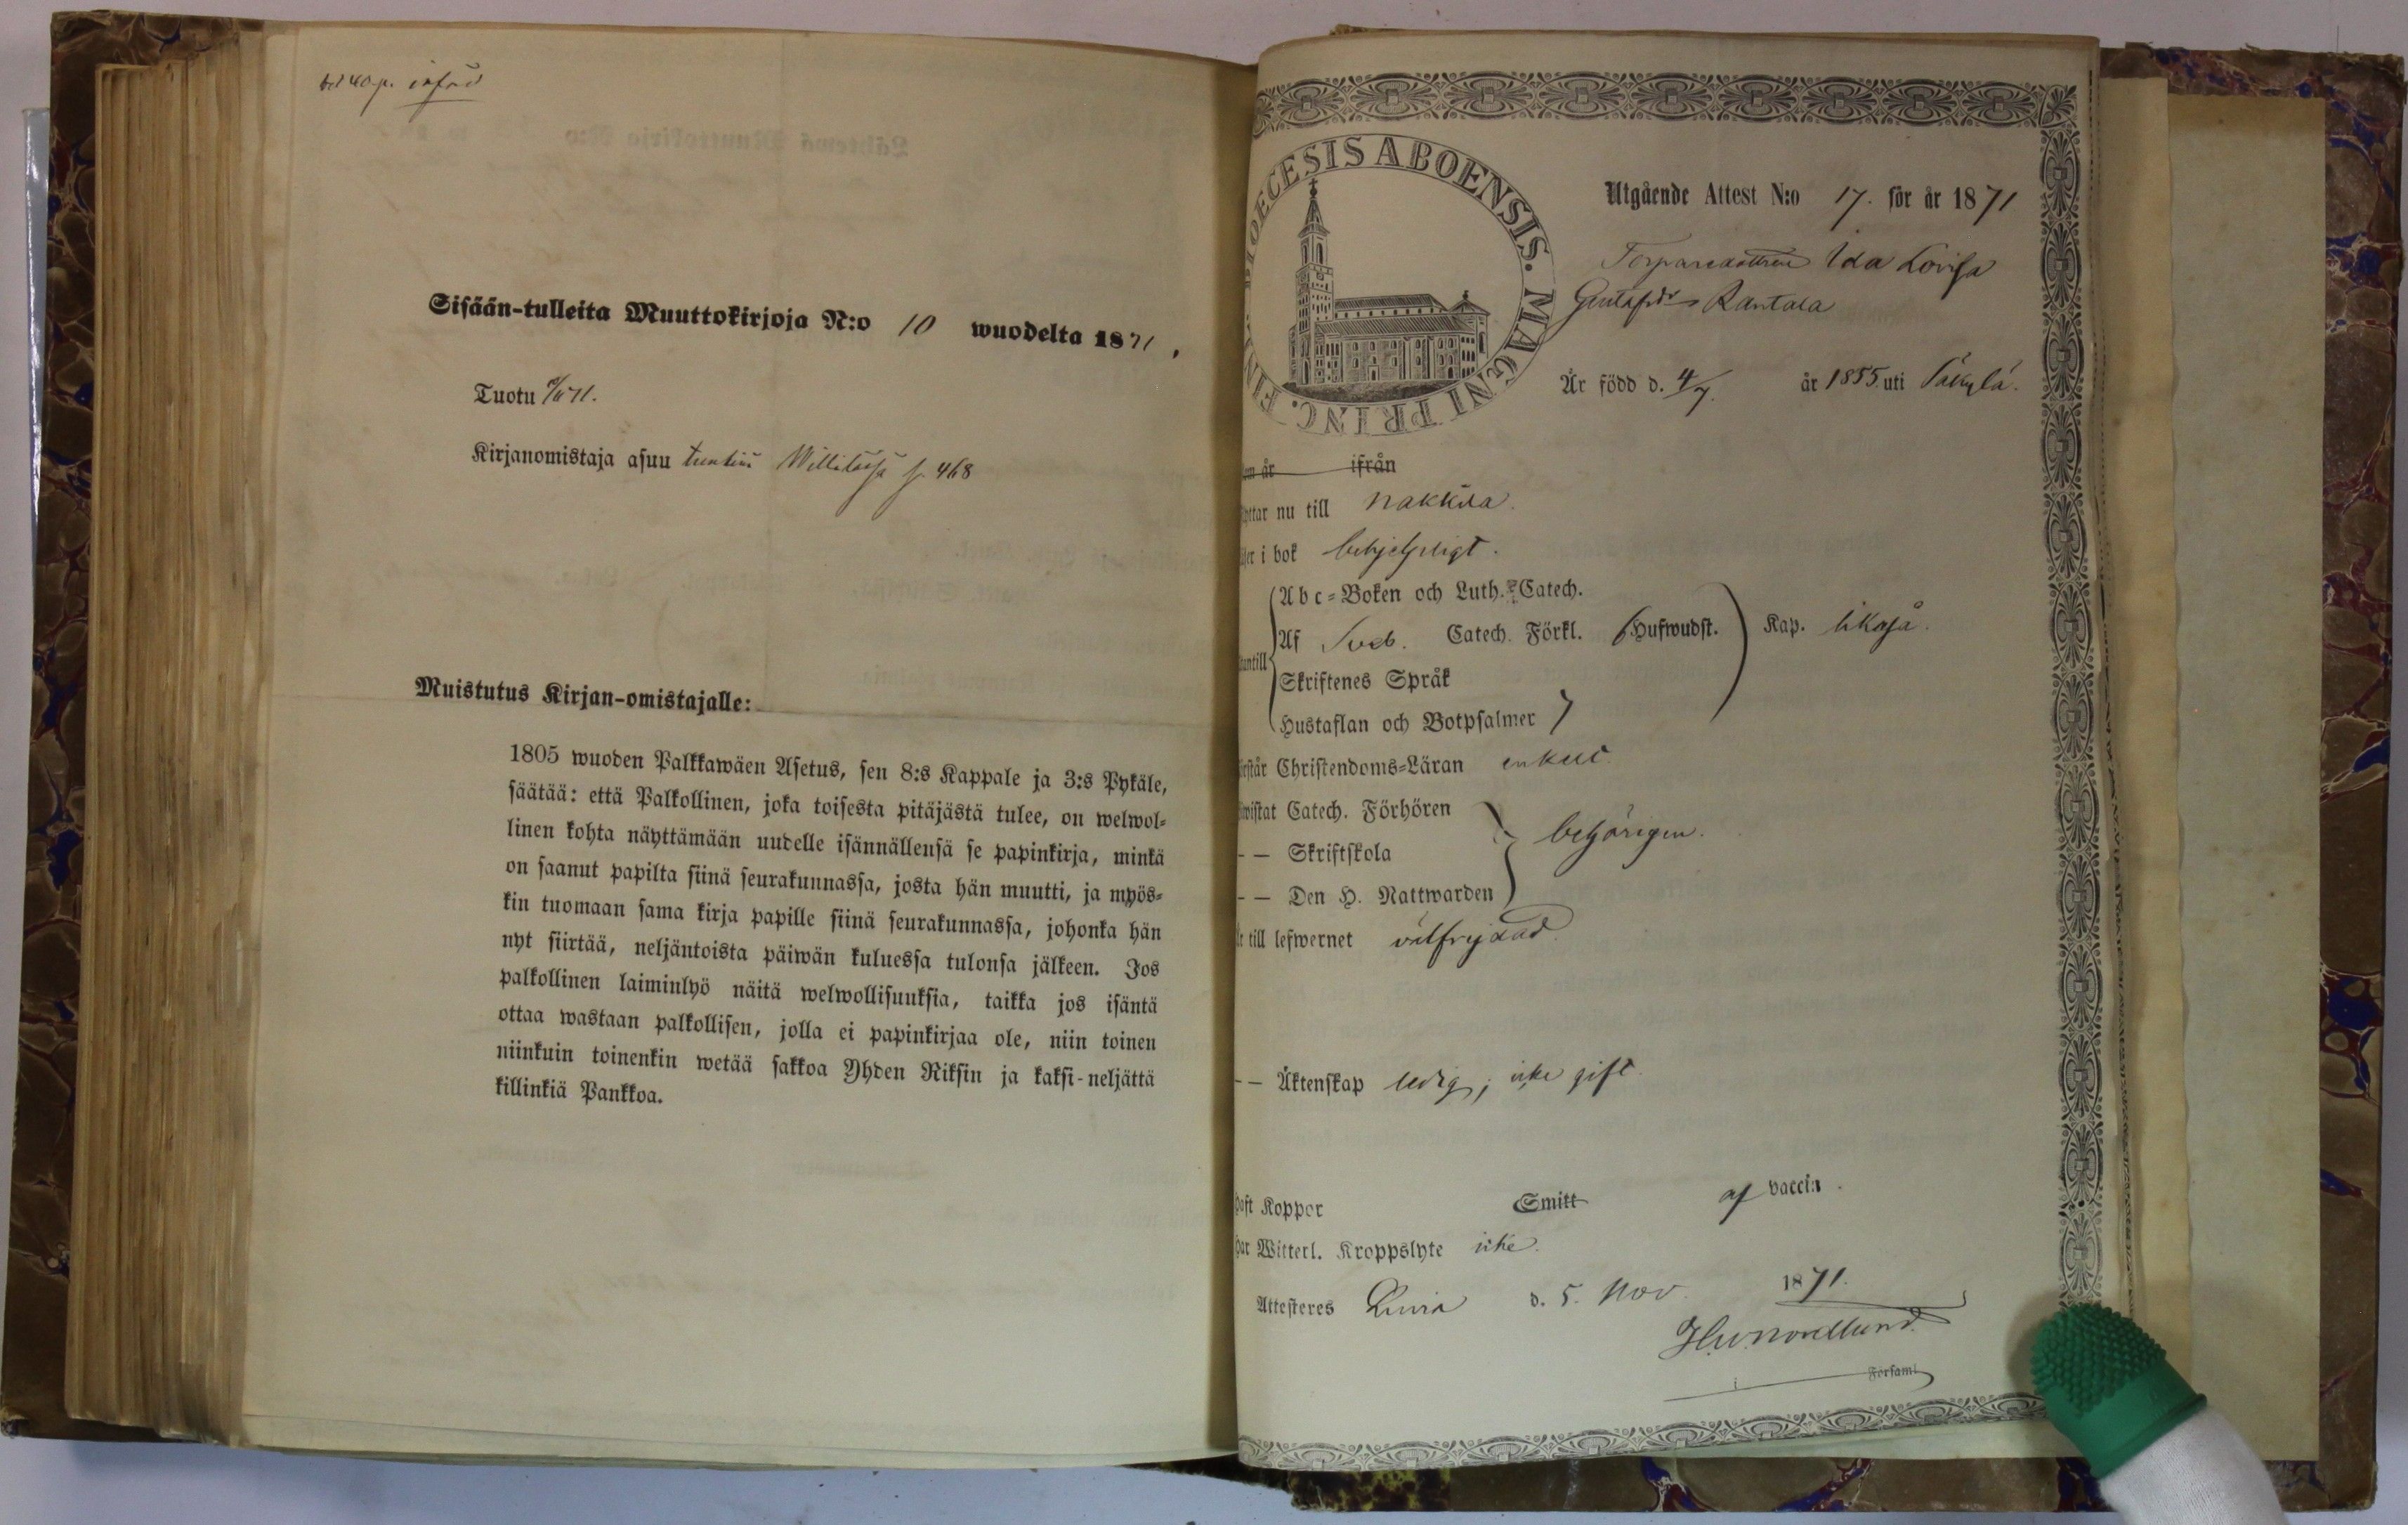 införd
Sisään-tulleita Muuttokirjoja N:o 10 wuodelta 1871,
Tuotu
Kirjanomistaja asuu s. 468
Muistutus Kirjan-omistajalle:
1805 wuoden Palkkawäen Asetus, sen 8:s Kappale ja 3:s Pykäle,
säätää: että Palkollinen, joka toisesta pitäjästä tulee, on welwol-
linen kohta näyttämään uudelle isännällensä se papinkirja, minkä
on saanut papilta siinä seurakunnassa, josta hän muutti, ja myös-
kin tuomaan sama kirja papille siinä seurakunnassa, johonka hän
nyt siirtää, neljäntoista päiwän kuluessa tulonsa jälkeen. Jos
palkollinen laiminlyö näitä welwollisuuksia, taikka jos isäntä
ottaa wastaan palkollisen, jolla ei papinkirjaa ole, niin toinen
niinkuin toinenkin wetää sakkoa Yhden Riksin ja kaksi-neljättä
killinkiä Pankkoa.
DIOECESIS ABOENSIS. MAGNI PRINC. FIN
Utgående Attest N:o 17. för år 1871
Torparedottren Ida Lovisa
Gustafsdr Rantala
Är född d. 4/7. år 1855. uti Säkylä.
om år ifrån
yttar nu till Nakkila.
äser i bok behjelpligt.
Abc-Boken och Luth. Catech.
Af Sveb. Catech. Förkl. Hufwudst. Kap. likaså.
utantill
Skriftenes Språk
Hustaflan och Botpsalmer
örstår Christendoms-Läran enkelt.
ewistat Catech. Förhören
-- Skriftskola behörigen.
-- Den H. Nattwarden
är till lefwernet välfrejdad.
-- Äktenskap ledig; icke gift.
Haft Koppor Smitt af vaccin.
Har Witterl. Kroppslyte icke.
Attesteres Luvia d. 5. Nov. 1871.
H.W. Nordlund.
i Församl